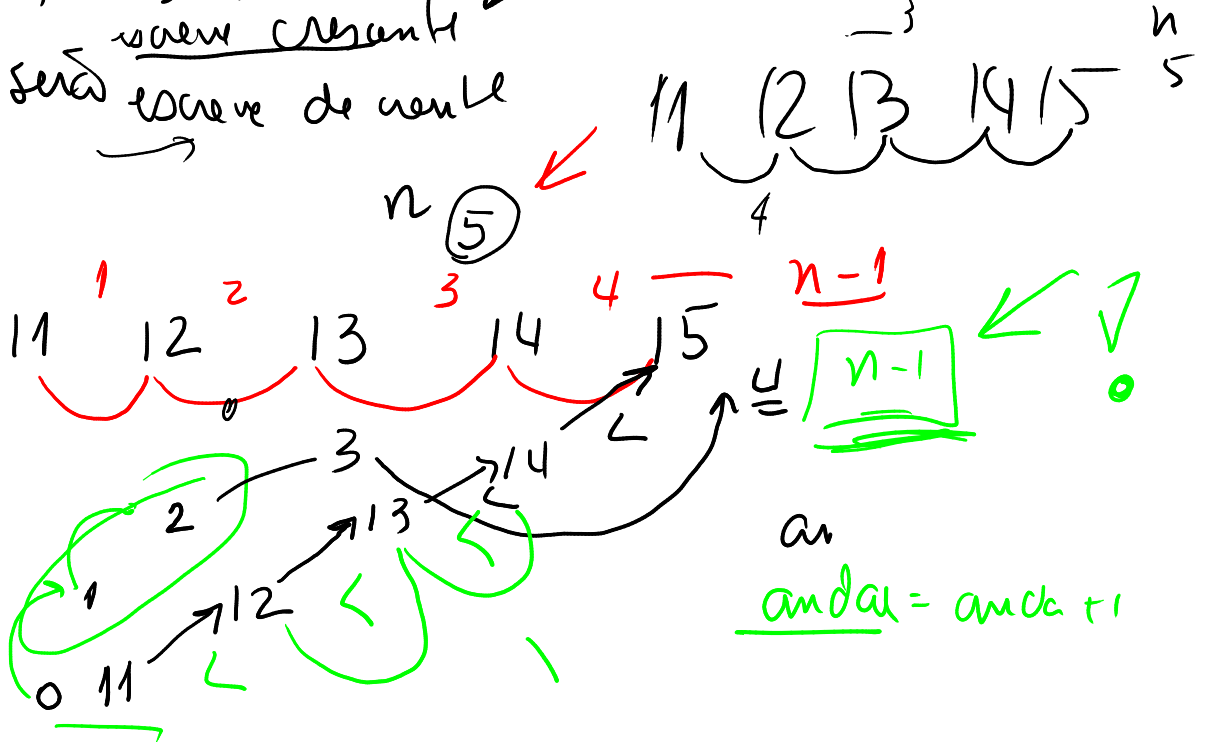 escreve crescente
senão escreve decrescente
3
n
5
11 12 13 14 15
4
n 5
1 2 3 4 n-1
11 12 13 14 15
4 n-1 !
3
14
2
13
an
1
12
andar = anda +1
0 11